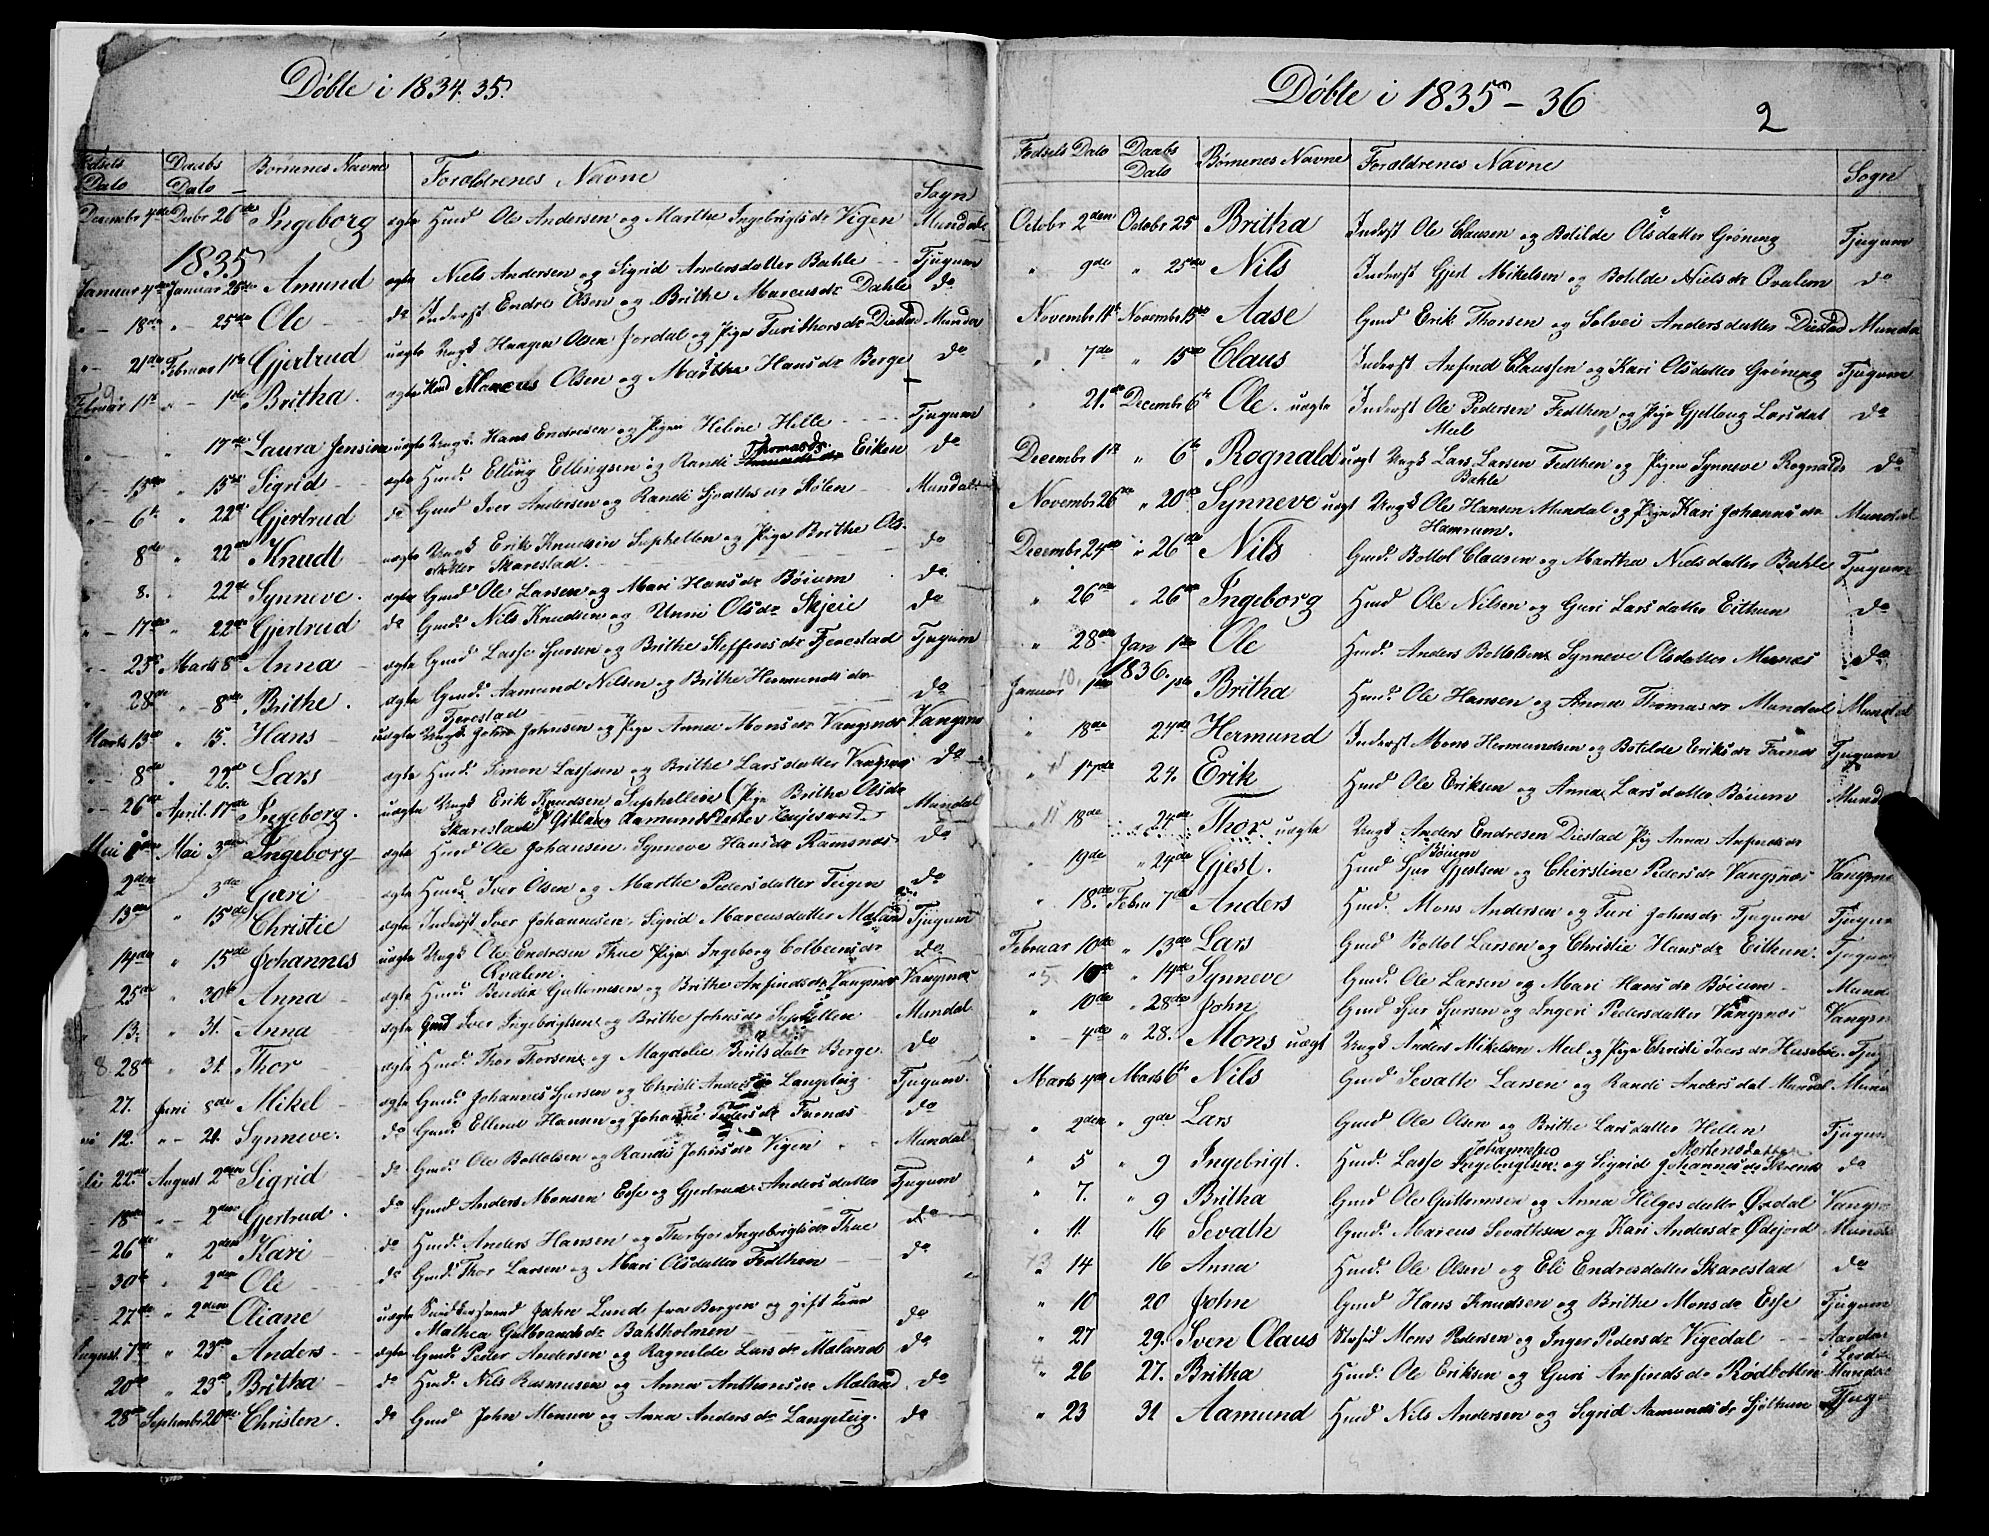 Døbte i 1834.35.
Fødsels Dato Daabs Dato Børnenes Navne Forældrenes Navne Sogn
Decembr 4de Decbr 26de Ingeborg ægte Huusd Ole Andersen og Marthe Ingebrigtsdr Vigen Mundals
1835
Januar Januar 25de Amund ægte Niels Andersen og Sigrid Andersdatter Bahle Tjugum
18de 25de Ole do Inderst Endre Olsen og Brithe Marcusdr Dahle do
21de Februar 1ste Gjertrud uægte Ungk Haagen Olsen Jordal og Pige Turi Thorsdr Diestad Mundal
Februar 1ste 1ste Britha. ægte Marcus Olsen og Marthe Hansdr Berge do
17de Laura Jensine uægte Ungk. Hans Endresen og Pigen Heline Hille Tjugum
13de 15de Sigrid ægte Huusd. Elling Ellingsen og Randi Thomasdr Eiken do
6te 22de Gjertrud do Gmd Iver Andersen og Randi Sjvattesdr Stølen Mundal
8de 22de Knudt uægte Ungk Erik Knudsen Suphellen og Pige Brithe Ols- do
datter Skarestad.
8. 22de Synneve. ægte Gmd Ole Larsen og Mari Hansdr Bøium do
17de 22de Gjertrud do Gmd. Nils Knudsen og Unni Olsdr Skjeie do
25de Marts 8de Anna ægte Gmd Lasse Sjursen og Brithe Steffensdr Fjerestad Tjugum
28de 8de Brithe. ægte Gmd. Aamund Nilsen og Brithe Hermundsdr do
Fjerestad
Marts 13de 15. Hans uægte Ungk John Johnsen og Pige Anna Monsdr Vangsnes Vangsnes
8de 22de Lars ægte Huusd. Simon Lassesen og Brithe Larsdatter Vangsnes do
26de April 17de Ingeborg. uægte Ungk Erik Knudsen Suphellen (Pige Brithe Olsdr Mundal
Skarestad
Mai Mai 3de Ingeborg ægte Huusd Ole Johansen Synneve Hansdr Ramsnæs do
2den 3de Guri ægte Huusd. Iver Olsen og Marthe Pedersdatter Teigen do
13de 15de Christie ægte Inderst Iver Johannesen Sigrid Marcusdatter Maland Tjugum
14de 15de Johannes uægte Ungk Ole Endresen Thue Pige Ingeborg Colbeensdr do
Qvalem.
25de 30te Anna ægte Huusd. Bendix Guttormsen og Brithe Arfindsdr Vangsnes Vangsnes
13. 31. Anna ægte Gmd Iver Ingebrigtsen og Brithe Johnsdr Suphellen Mundal
28de 31. Thor ægte Huusd. Thor Thorsen og Magdelie Bentsdatr Berge. do
27. Juni 8de Mikel ægte Gmd. Johannes Sjursen og Christi Andersdr Langeteig Tjugum.
12. 21. Synneve. do Gmd Ellend Hansen og Johanne Pedersdr Farnæs do
22de August 2den Sigrid do Gmd. Ole Bottolsen og Randi Johnsdr Vigen Mundal
18de 2den Gjertrud. do Gmd Anders Monsen Esse og Gjertrud Andersdatter Tjugum
26de 2den Kari do Huusd. Anders Hansen og Thorbjor Ingebrigtsdr Thue do
30te 2den Ole do Gmd. Thor Larsen og Mari Olsdatter Fedthen do
27de 2den Oliane uægte John Lund fra Bergen og gift Kone do
Mathea Gulbrandsdr Bahlholmen
August 7de 23de Anders ægte Gmd. Peder Andersen og Ragnilde Larsdr Maland do
20de 23de Britha do Huusd. Nils Rasmusen og Anna Anthonsdr Maland do
28de Septembr 20de Christen. do Gmd John Monsen og Anna Andersdr Langeteig. do
Døbte i 1835 - 36
2
Fødsels Dato Daabs Dato Børnenes Navne Forældrenes Navne Sogn
Octobr 2den Octobr 25 Britha Inderst Ole Clausen og Botilde Olsdatter Grøning Tjugum
9de 25de Nils Inderst Gjert Mikelsen og Botilde Nielsdr Qvalem do
Novembr 1ste Novembr 15de Aase Gmd Erik Thorsen og Solvei Andersdatter Diestad Mundal
7de 15de Claus Inderst Arfind Claussen og Kari Olsdatter Grøning Tjugum
21de Decembr 6te Ole. uægte Inderst Ole Pedersen Fedthen og Pige Gjellaug Larsdat do
Meel
Decembr 1ste 6te Rognald uægt Ungk Lars Larsen Fedthen og Pige Synneve Rognalds do
Bahle
Novembr 26de 20de Synneve uægt Ungk Ole Hansen Mundal og Pige Kari Johannesdr Mundal
Hamrum.
Decembr 24de 26de Nils Gmd. Bottol Clausen og Martha Nielsdatter Bahle Tjugum
26de 26de Ingeborg Huusd Ole Nilsen og Guri Larsdatter Eithun do
28de Jan 1ste Ole Huusd. Anders Bottolsen Synneve Olsdatter Munæs do
1836.
Januar 1ste 1ste Britha Huusd. Ole Hansen og Anna Thomasdr Mundal Mundal
18de 24de Hermund Inderst Mons Hermundsen og Botilde Eriksdr Farnæs Tjugum
17de 24. Erik Huusd Ole Eriksen og Anna Larsdatter Bøium Mundal
18de 24de Thor uægte Ungk Anders Endresen Diestad Pig Anna Arfindsdr
Bøium
19de 24de Gjest. Huusd Sjur Gjestsen og Chirstine Pedersdr Vangsnes Vangsne
18de Febru 7de Anders Huusd. Mons Andersen og Turi Johnsdr Tjugum Tjugum
Februar 10de 13de Lars Gmd Bottol Larsen og Christie Hansdr Eithun. Tjugum
10de 14de Synneve Gmd. Ole Larsen og Mari Hansdr Bøium Mund
10de 28de John Gmd Sjur Sjursen og Ingeri Pedersdatter Vangsnes Vangsn
4de 28. Mons uægt Ungk Anders Mikelsen Meel og Pige Christi Iversdr Husebøe. Tjug
Marts 4de Marts 6te Nils Gmd Sevatte Larsen og Randi Andersdat Mundal Mund
2den 9de Lars Gmd Ole Olsen og Brithe Larsdatter Hellen Tjugum
5 9 Ingebrigt. Huusd. Lasse Johannesen Ingebrigtsen og Sigrid Mortensdatter Johannesdr do
7. 9 Britha Gmd Ole Guttormsen og Anna Helgesdatter Øvedal Vangsn
11. 16 Sevath Gmd. Marcus Sevathsen og Kari Andersdr Ødefjord Munda
14 16 Anna Huusd. Ole Olsen og Eli Endresdatter Skarestad do
10 20 John Gmd Hans Knudsen og Brithe Monsdr Esse Tjugum
27 29. Sven Olaus Mons Pedersen og Inger Pedersdr Vigedal Aardal
i Lerdal
26 27. Britha Huusd. Ole Eriksen og Guri Arfindsdr Rødbotten Mundal
23 31 Aamund Huusd Nils Andersen og Sigrid Aamundsdr Sjøthun Tjugu